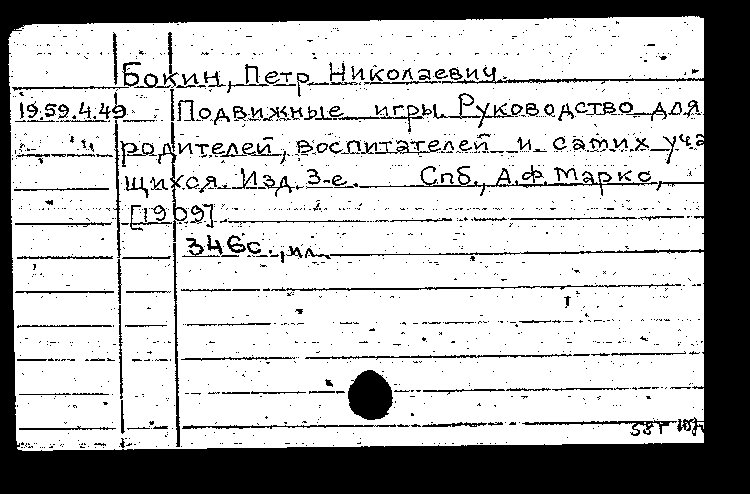 Бокин, Петр Николаевич.
19.59.4.49 Подвижные игры. Руководство для
родителей, воспитателей и самих уча
щихся. Изд. 3-е. Спб., А.Ф. Маркс,
[1909]
346с., ил.